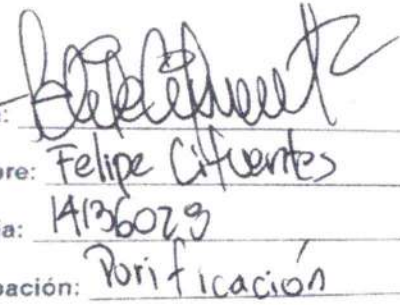 :
bre: Felipe Cifuentes
ia: 14136029
pación: Purificación